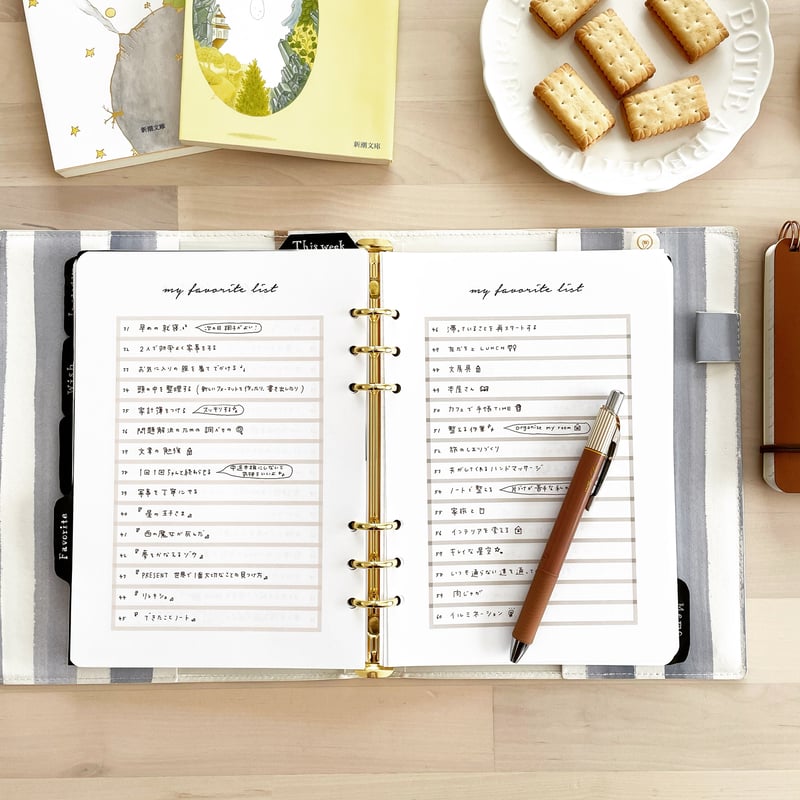 新潮文庫
新潮文庫
BOTTE A
This week
Wish
Favorite
Memo
my favorite list
31 早めの就寝 次の日調子がよい!
32 2人で効率よく家事をする
33 お気に入りの服を着てでかける
34 頭の中を整理する (新しいフォーマットを作ったり、書き出したり)
35 家計簿をつける スッキリする
36 問題解決のための調べもの
37 文章の勉強
38 1回1回きちんと終わらせる 中途半端にしないと気持ちいいよ
39 家事を丁寧にする
40 『星の王子さま』
41 『西の魔女が死んだ』
42 『夢をかなえるゾウ』
43 『PRESENT 世界で1番大切なことの見つけ方』
44 『リトキュ』
45 『できたことノート』
my favorite list
46 滞っていることを再スタートする
47 友だちと LUNCH
48 文房具
49 本屋さん
50 カフェで手帳TIME
51 整える作業 organize my room
52 旅のしおりづくり
53 夫がしてくれるハンドマッサージ
54 ノートで整える 片づけが苦手な私の
55 家族と
56 インテリアを変える
57 キレイな星空
58 いつも通らない道を通って
59 肉じゃが
60 イルミネーション